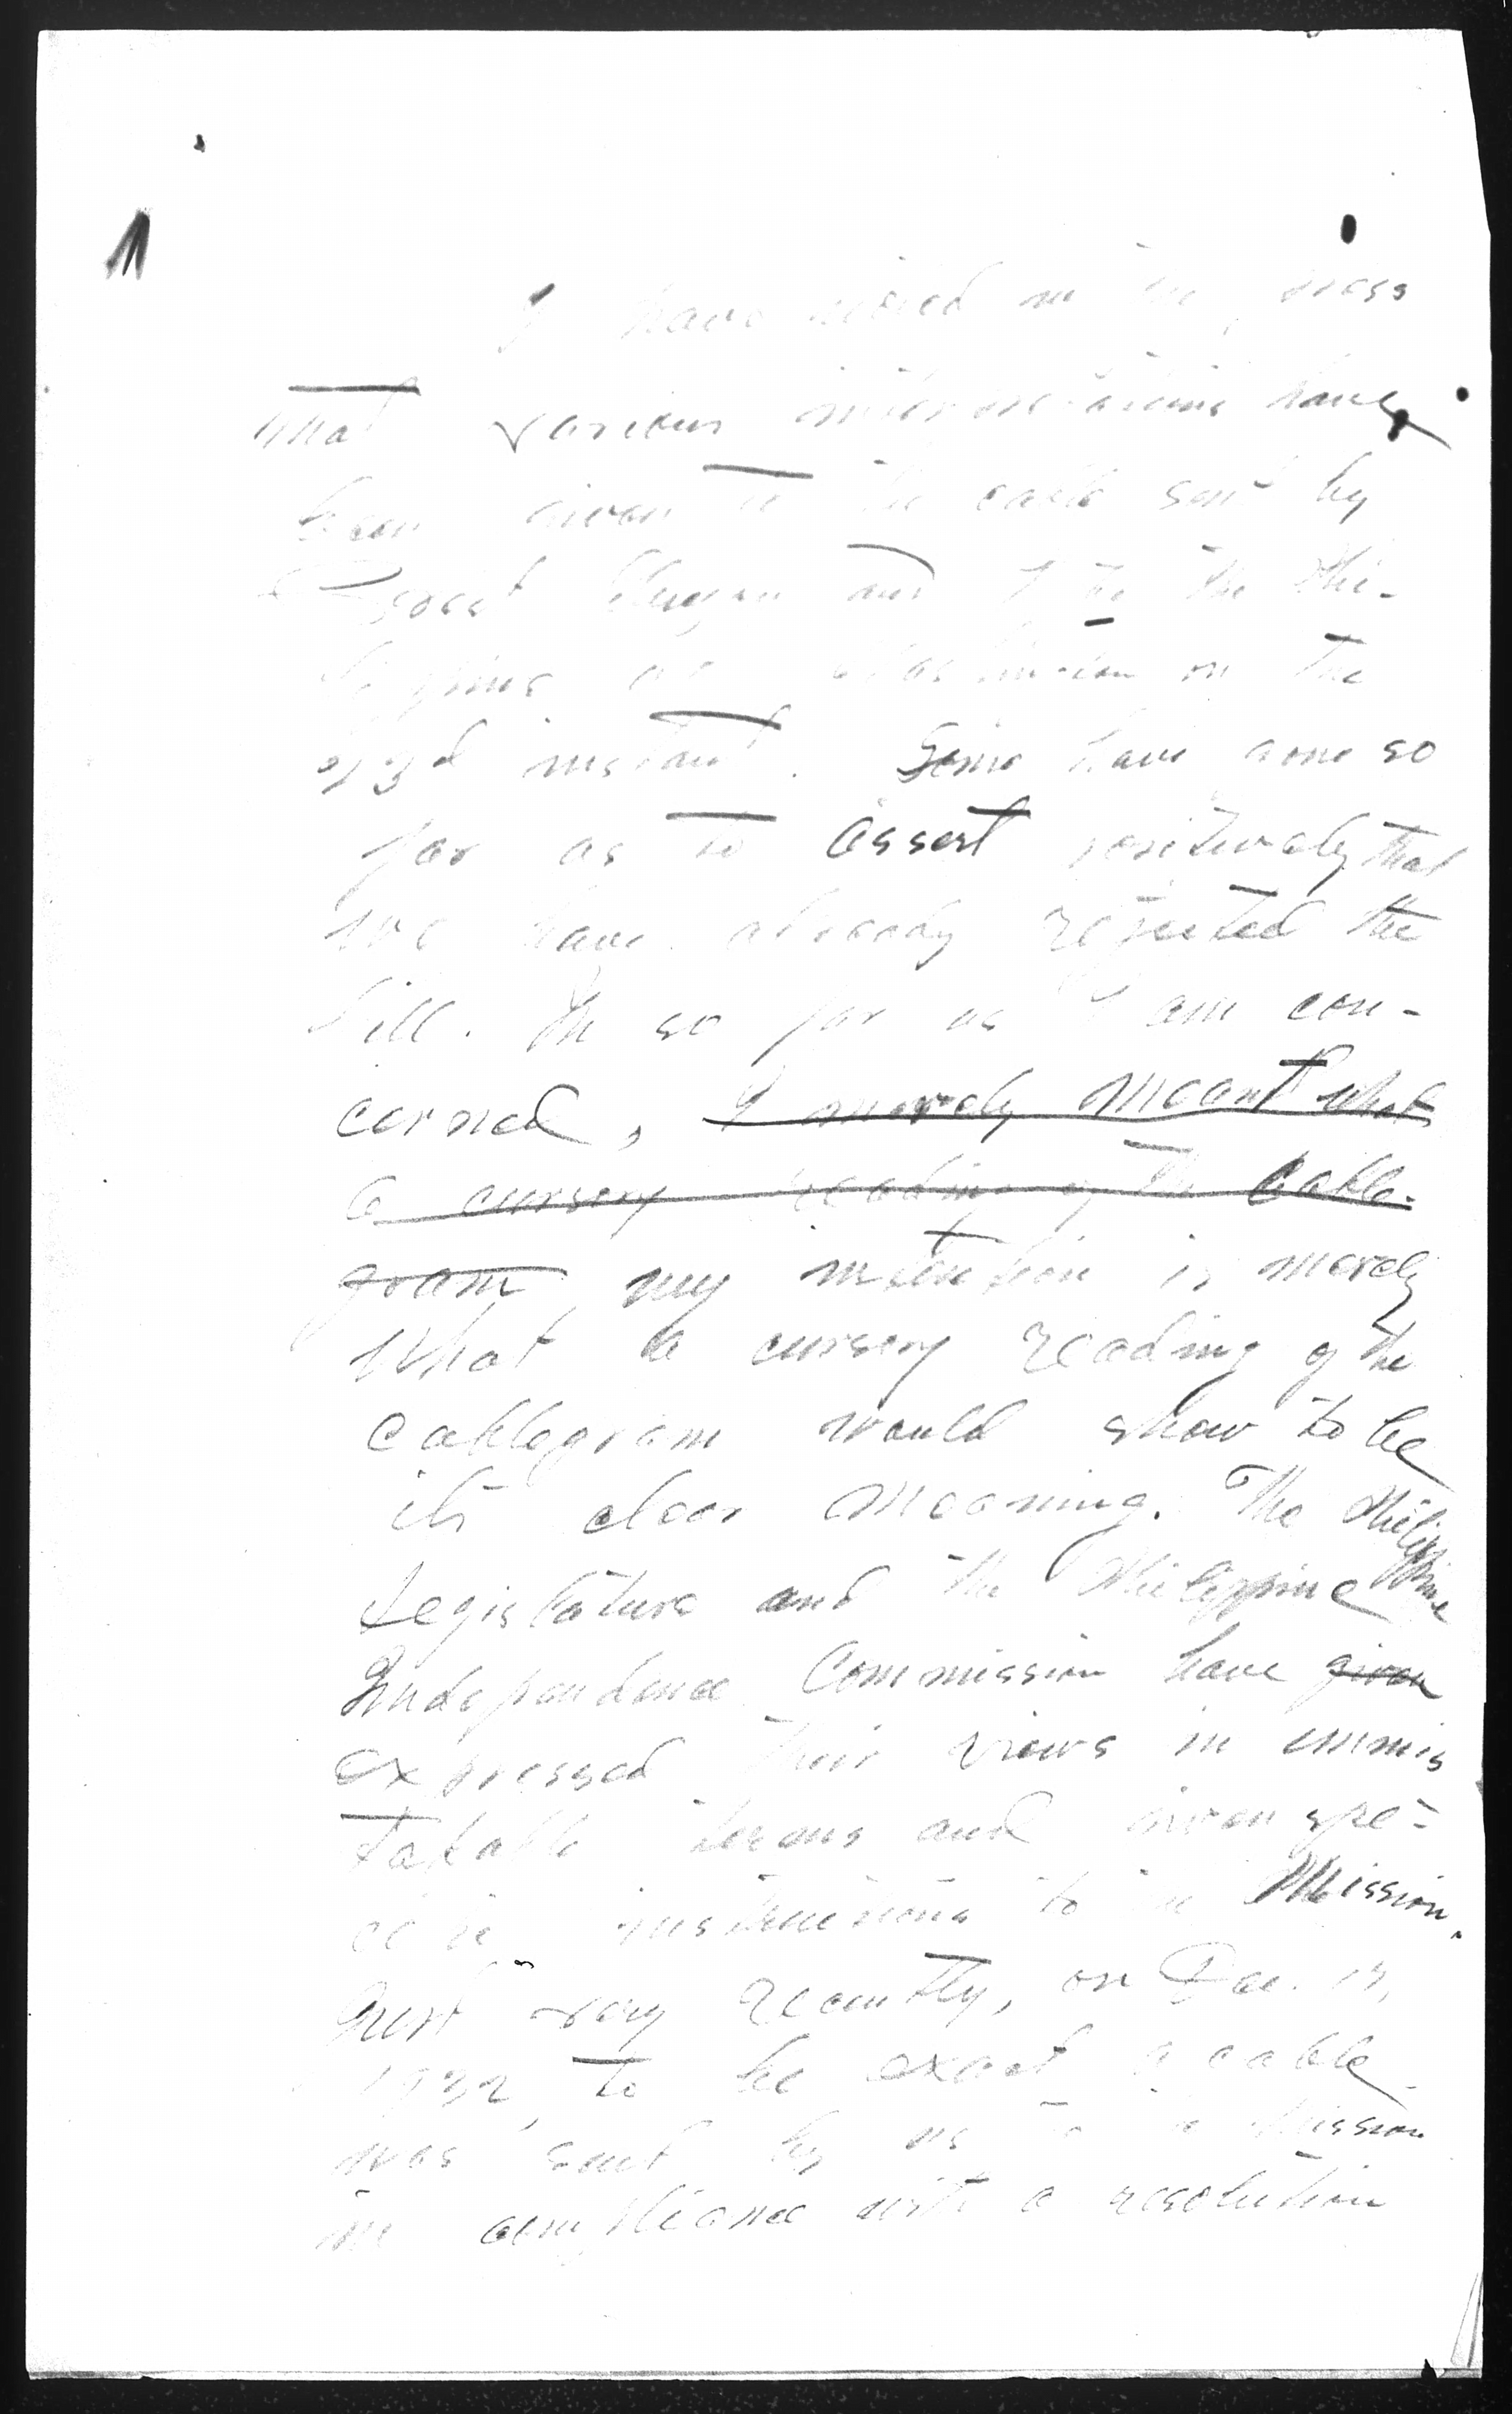 I have noticed in the press
that various interpretations have
been given to the cable sent by
and I to the Phi-
on the
23d instant. Some have gone so
far as to assert positively that
we have already rejected the
bill. In so far as I am con-
cerned, I merely meant what
a cursory reading of the cable-
gram my intention is merely
what a cursory reading of the
cablegram would show to be
its clear meaning. The Philippine
Legislature and the Philippine
Independence Commission have given
expressed their views in unmis
takable terms and given spe-
cific instructions to the Mission.
Just very recently, on Dec.
1932, to be exact a cable
was sent by us to the Mission
in compliance with a resolution